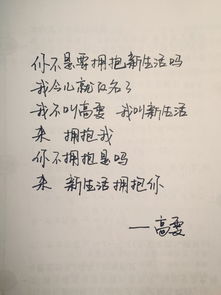 你不是要拥抱新生活吗
我今儿就改名了
我不叫高雯 我叫新生活
来 拥抱我
你不拥抱是吗
来 新生活拥抱你
—高雯